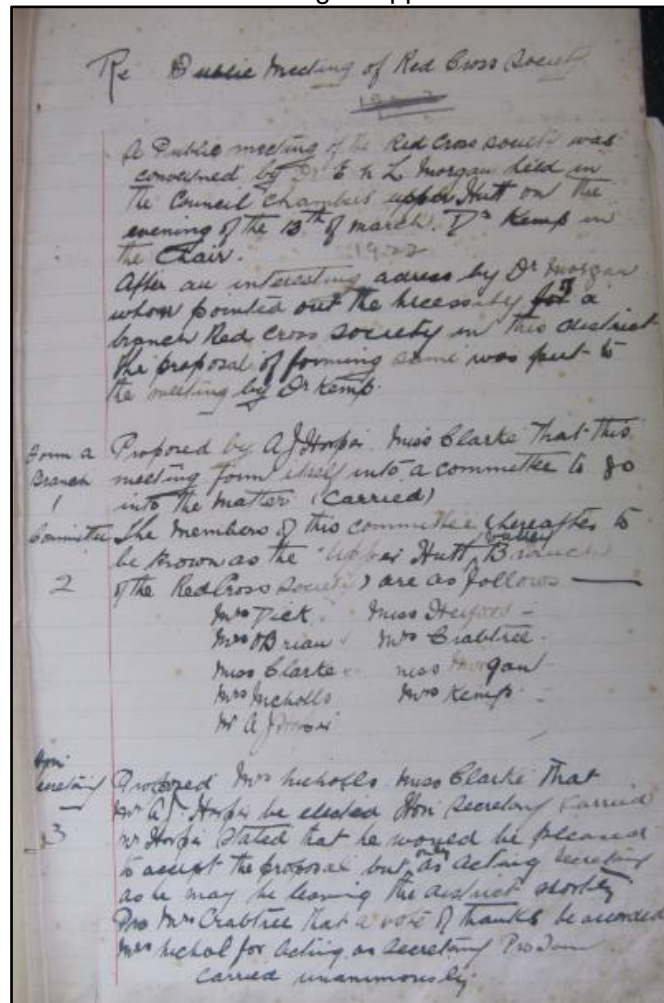 Re Public Meeting of Red Cross Society
A Public meeting of the Red Cross society was
convened by Dr E N L Morgan held in
the Council Chambers upper Hutt on the
evening of the 13th of march. Dr Kemp in
the Chair. 1922
After an interesting adress by Dr Morgan
whom pointed out the necessity for a
branch Red Cross society in this district
the proposal of forming same was put to
the meeting by Dr Kemp.
Form a Branch 1
Proposed by A J Miss Clarke That this
meeting form itself into a committee to go
into the matter (Carried)
Committee 2
The members of this committee (hereafter to
be known as the "Upper Hutt Valley Branch
of the Red Cross Society) are as follows —
Mrs Dick Miss
Mrs OBrian Mrs Crabtree
Miss Clarke miss Morgan
Mrs Nicholls Mrs Kemp
Mr A J
Hon Secretary 3
Proposed Mrs Nicholls Miss Clarke That
Mr A J be elected Hon Secretary Carried
Mr stated that he would be pleased
to accept the proposal but only as acting secretary
as he may be leaving the district shortly
Pro Mrs Crabtree that a vote of thanks be accorded
Mrs Nichol for acting as Secretary Pro Tem
carried unanimously.